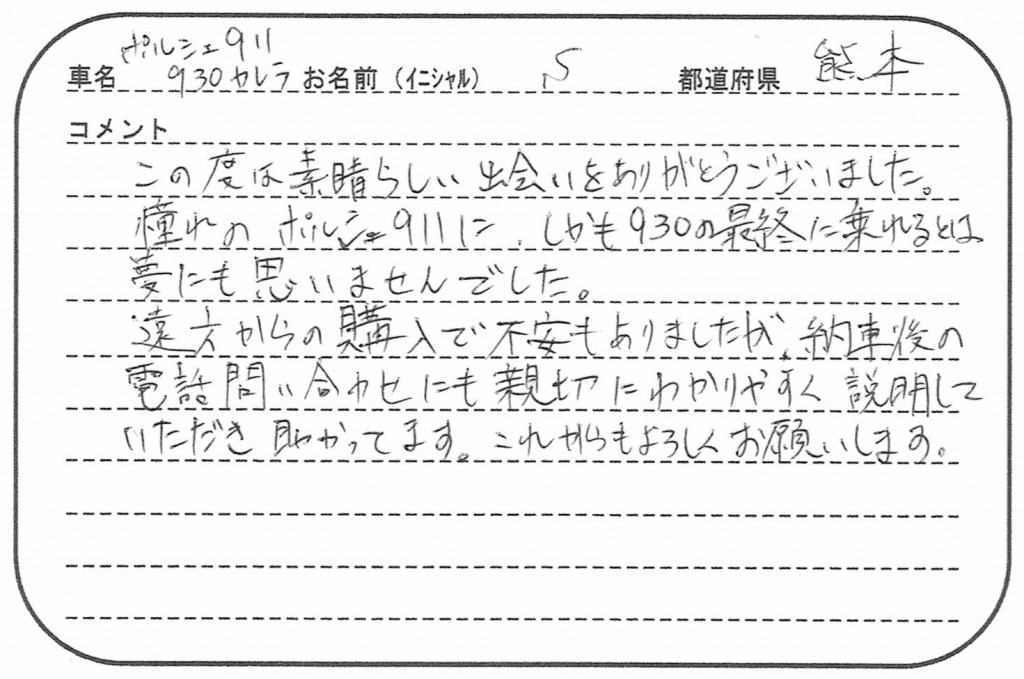 ポルシェ911
車名 930カレラ お名前（イニシャル） S 都道府県 熊本
コメント
この度は素晴らしい出会いをありがとうございました。
憧れのポルシェ911に、しかも930の最終に乗れるとは
夢にも思いませんでした。
遠方からの購入で不安もありましたが、納車後の
電話問い合わせにも親切にわかりやすく説明して
いただき助かってます。これからもよろしくお願いします。